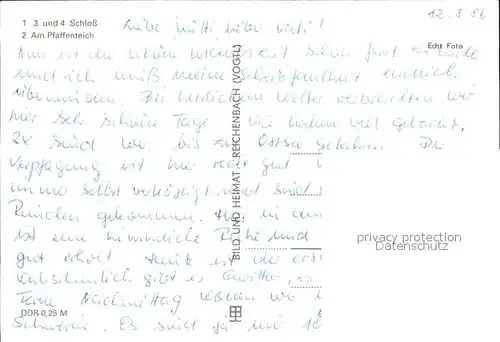 1 3 und 4 Schloß
2 Am Pfaffenteich
12.8.86
Liebe Mutti, lieber Vati!
Nun ist die schöne Urlaubszeit schon fast zu Ende
und ich muß meine Schreibfaulheit endlich
überwinden. Bei herrlichem Wetter verbrachten wir
hier sehr schöne Tage wir haben viel gebadet,
2x sind wir bis zur Ostsee gefahren Die
Verpflegung ist hier recht gut
immer selbst verköstigt und sind
Runden gekommen. Hier in
ist eine himmlische Ruhe und
gut erholt Heute ist der erste
wahrscheinlich gibt es Gewitter, es
Ferne Nachmittag wollen wir
Schwerin. Es sind ja nur
Echt Foto
BILD UND HEIMAT REICHENBACH (VOGTL)
DDR 0,25 M
privacy protection
Datenschutz